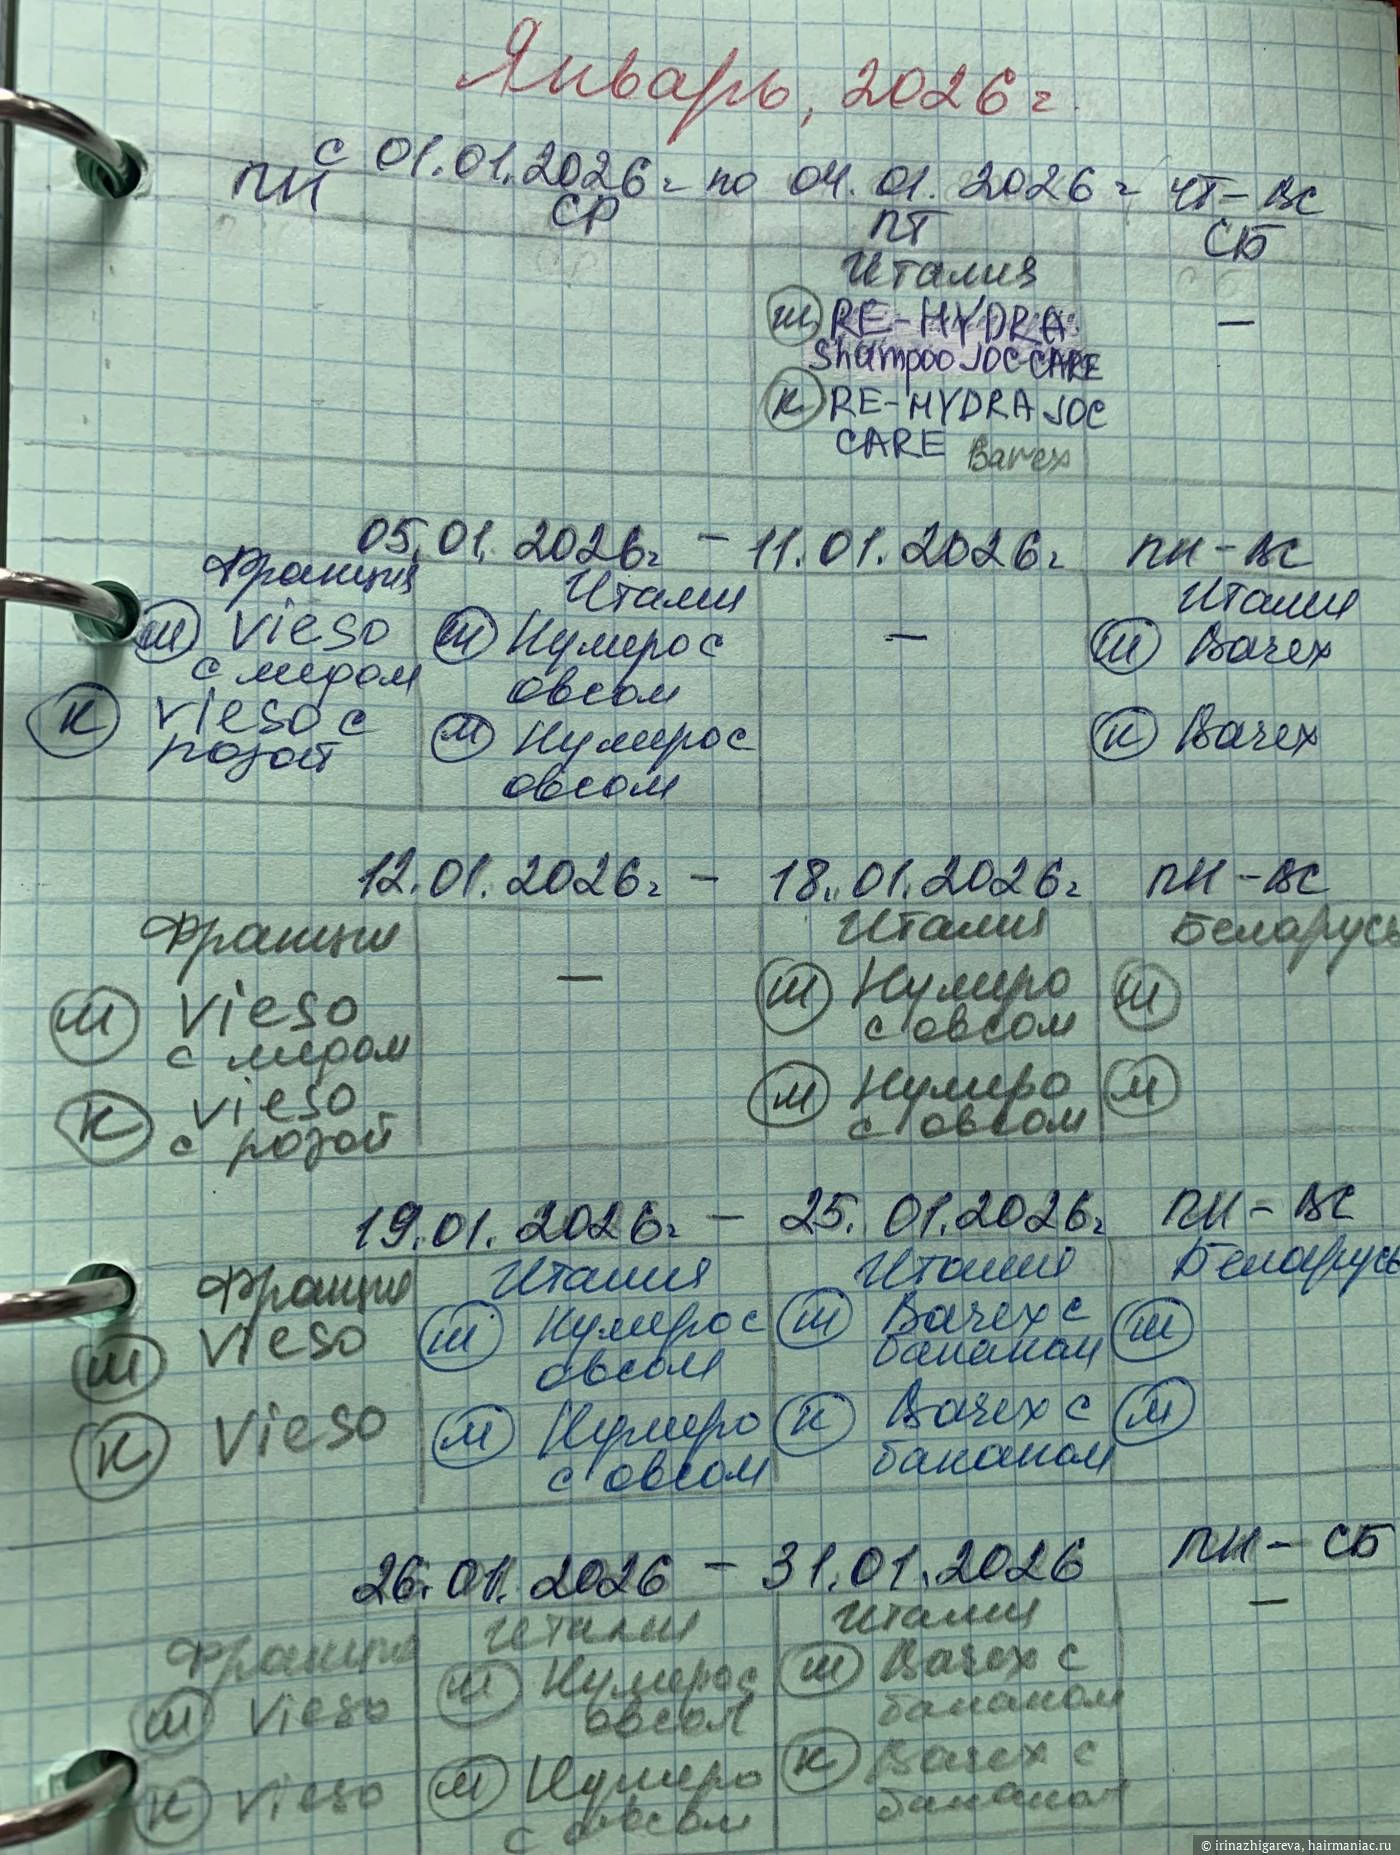 Январь, 2026 г.
с 01.01.2026 г по 04.01.2026 г чт-вс
ПН СР ПТ СБ
Италия
Ш RE-HYDRA —
Shampoo JOC CARE
К RE-HYDRA JOC
CARE Barex
05.01.2026г - 11.01.2026г пн-вс
Франция Италия Италия
Ш Vieso Ш Нумеро с — Ш Barex
с миром овсом
К Vieso с М Нумеро с К Barex
розой овсом
12.01.2026г - 18.01.2026г пн-вс
Франция Италия Беларусь
Ш Vieso — Ш Нумеро Ш
с миром с овсом
К Vieso М Нумеро М
с розой с овсом
19.01.2026г - 25.01.2026г пн-вс
Франция Италия Италия Беларусь
Ш Vieso Ш Нумеро с Ш Barex с Ш
овсом бананом
К Vieso М Нумеро К Barex с М
с овсом бананом
26.01.2026 - 31.01.2026 пн-сб
Франция Италия Италия —
Ш Vieso Ш Нумеро с Ш Barex с
овсом бананом
К Vieso М Нумеро К Barex с
с овсом бананом
© irinazhigareva, hairmaniac.ru